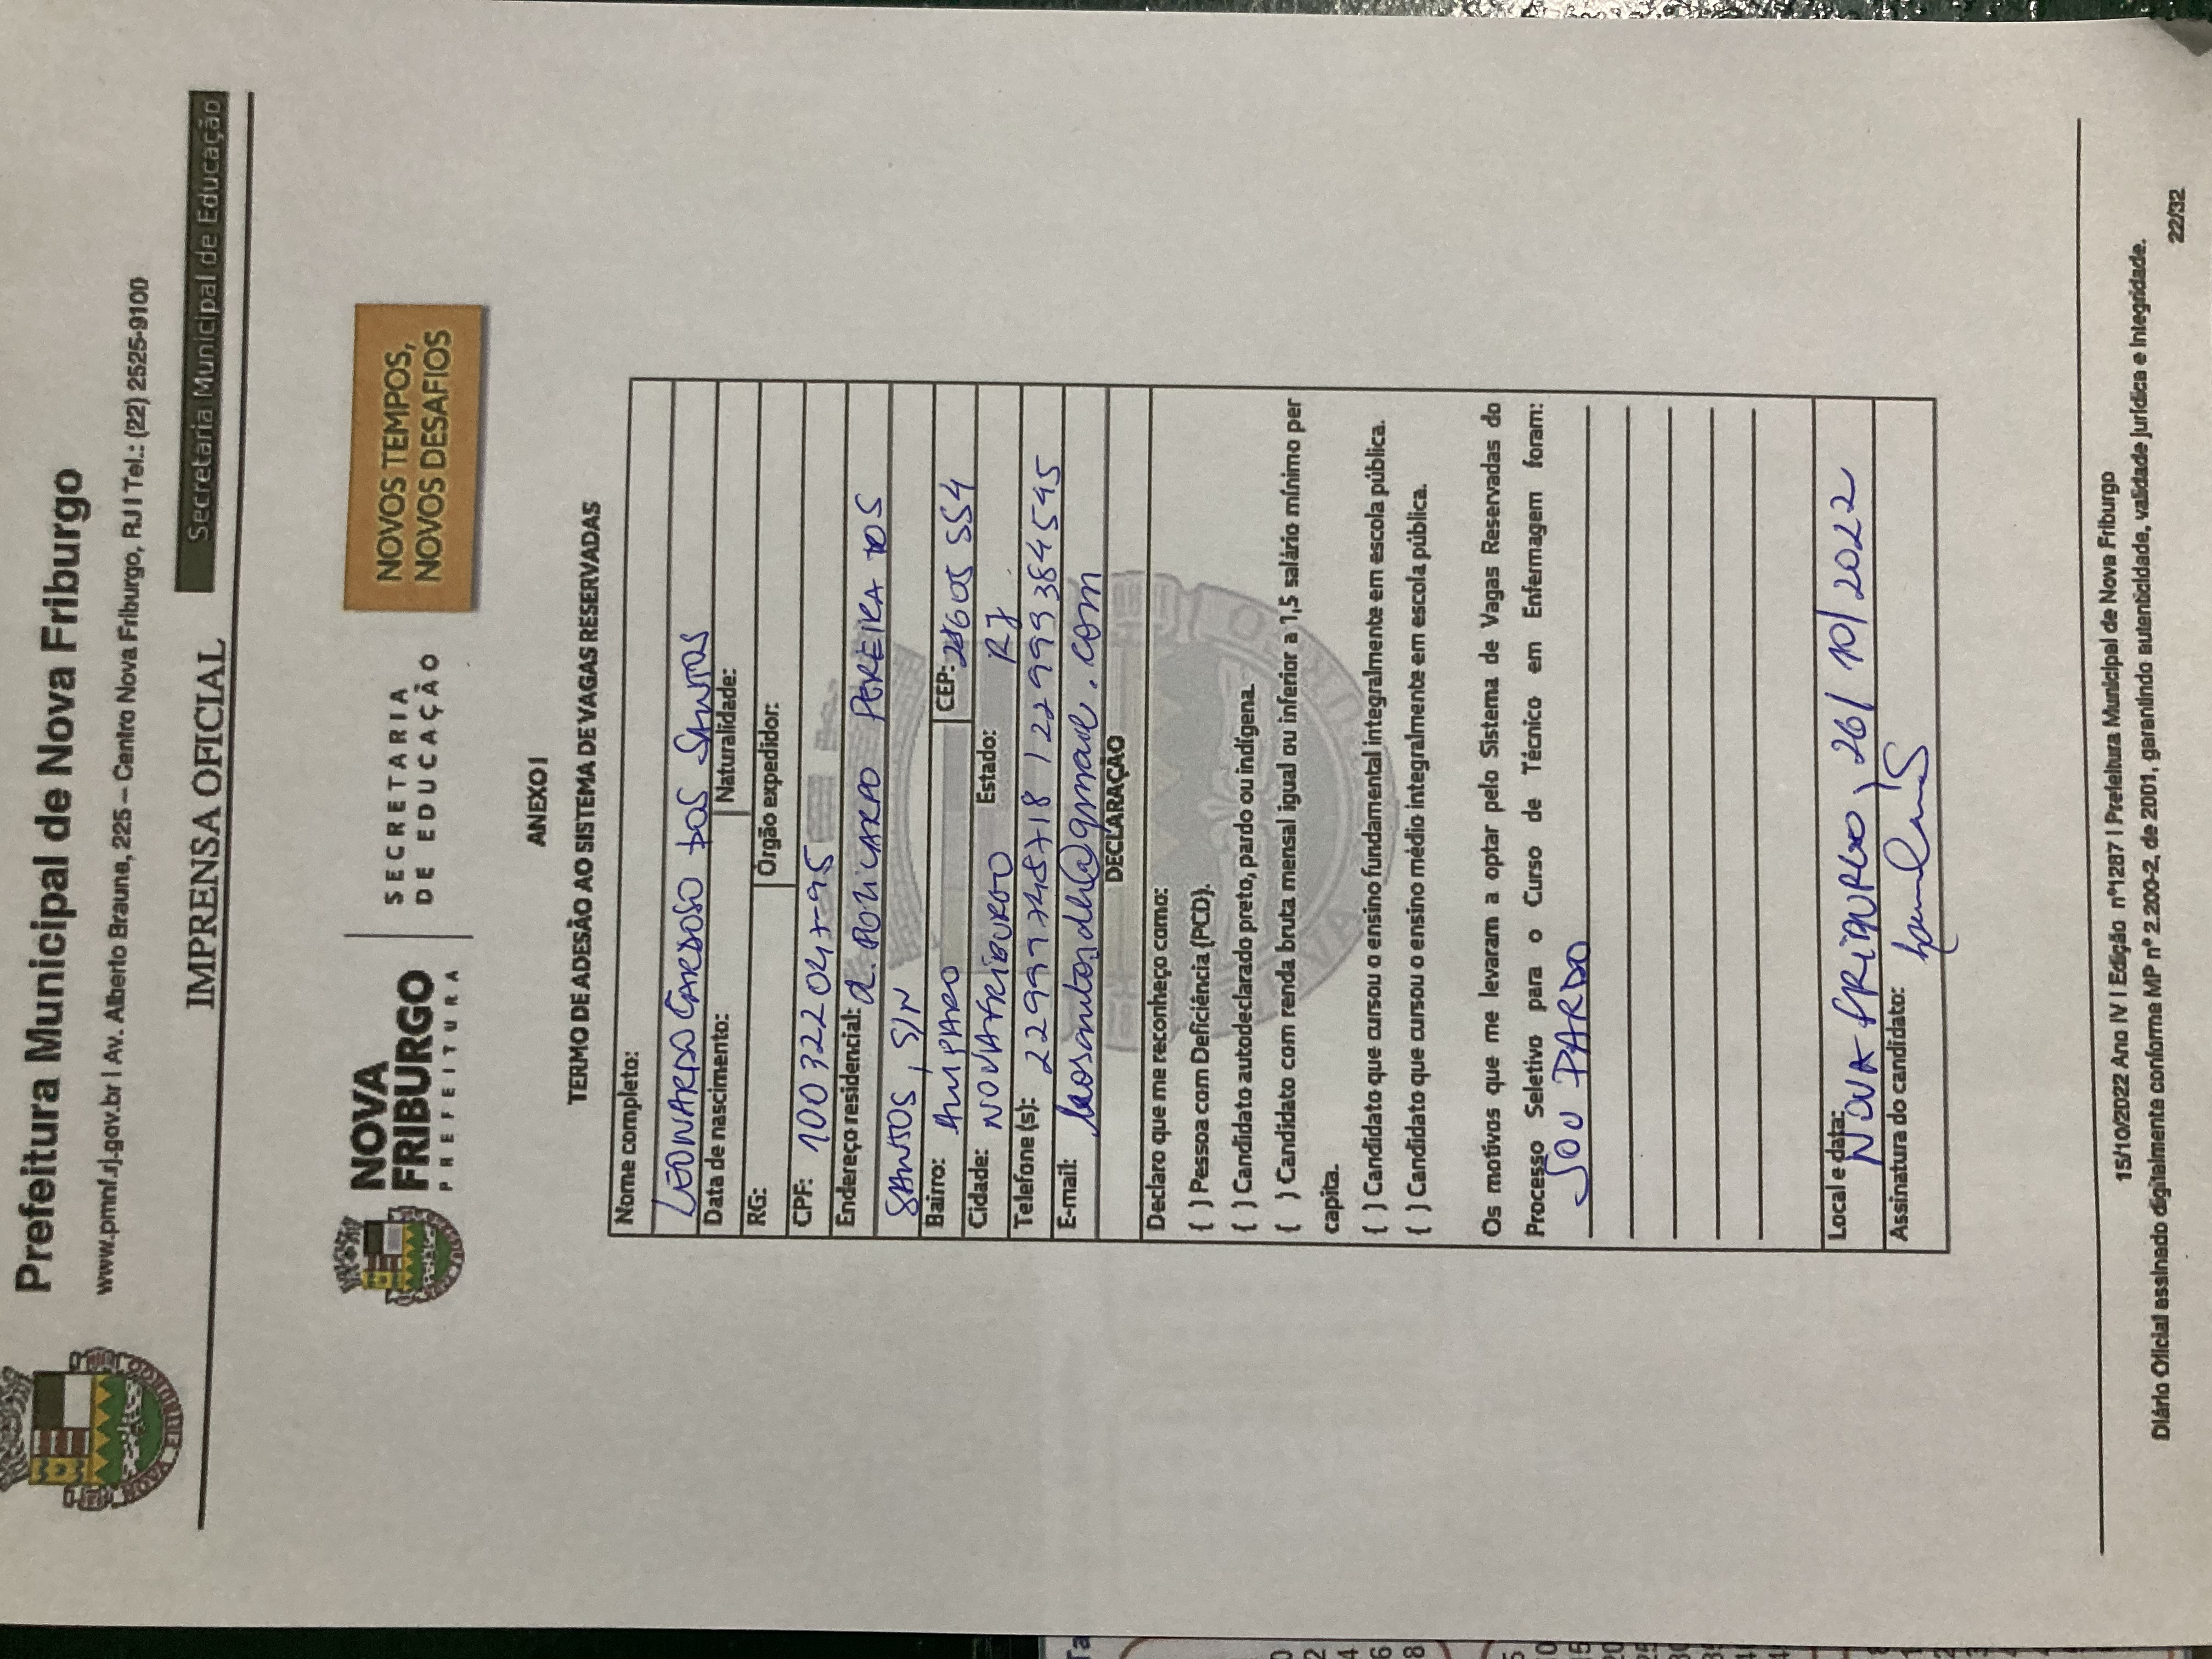 Prefeitura Municipal de Nova Friburgo
www.pmnf.rj.gov.br | Av. Alberto Braune, 225 – Centro Nova Friburgo, RJ | Tel.: (22) 2525-9100
IMPRENSA OFICIAL
Secretaria Municipal de Educação
NOVA FRIBURGO
NOVA
FRIBURGO
PREFEITURA
SECRETARIA
DE EDUCAÇÃO
NOVOS TEMPOS,
NOVOS DESAFIOS
ANEXO I
TERMO DE ADESÃO AO SISTEMA DE VAGAS RESERVADAS
Nome completo:
LEONARDO CARDOSO DOS SANTOS
Data de nascimento: Naturalidade:
RG: Órgão expedidor:
CPF: 100322047-95
Endereço residencial: R. POLICARPO PEREIRA DOS
SANTOS, S/N
Bairro: AMPARO CEP: 28605 554
Cidade: NOVA FRIBURGO Estado: RJ
Telefone (s): 22999748718 / 22999384545
E-mail: @gmail.com
DECLARAÇÃO
Declaro que me reconheço como:
( ) Pessoa com Deficiência (PCD).
( ) Candidato autodeclarado preto, pardo ou indígena.
( ) Candidato com renda bruta mensal igual ou inferior a 1,5 salário mínimo per
capita.
( ) Candidato que cursou o ensino fundamental integralmente em escola pública.
( ) Candidato que cursou o ensino médio integralmente em escola pública.
Os motivos que me levaram a optar pelo Sistema de Vagas Reservadas do
Processo Seletivo para o Curso de Técnico em Enfermagem foram:
SOU PARDO
Local e data: NOVA FRIBURGO, 26/10/2022
Assinatura do candidato:
15/10/2022 Ano IV | Edição nº1287 | Prefeitura Municipal de Nova Friburgo
Diário Oficial assinado digitalmente conforme MP nº 2.200-2, de 2001, garantindo autenticidade, validade jurídica e integridade.
22/32